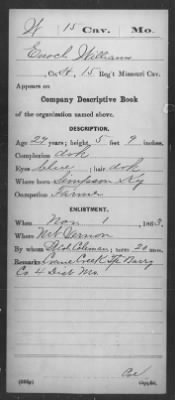 W 15 Cav. Mo.
Enoch Williams
, Co. H, 15 Reg't Missouri Cav.
Appears on
Company Descriptive Book
of the organization named above.
DESCRIPTION.
Age 27 years; height, 5 feet 9 inches.
Complexion dok
Eyes blue; hair dok
Where born Simpson Ky
Occupation Farmer
ENLISTMENT.
When Nov 1, 1863.
Where Mt Vernon
By whom Coleman; term 20 mos.
Remarks Crane Creek Tp Barry
Co 4 Dist Mo.
Copyist.